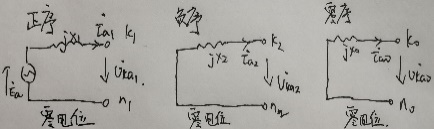 正序
jX₁
İa₁
k₁
U̇ka₁
Ėa
n₁
零电位
负序
jX₂
İa₂
k₂
U̇ka₂
n₂
零电位
零序
jX₀
İa₀
k₀
U̇ka₀
n₀
零电位